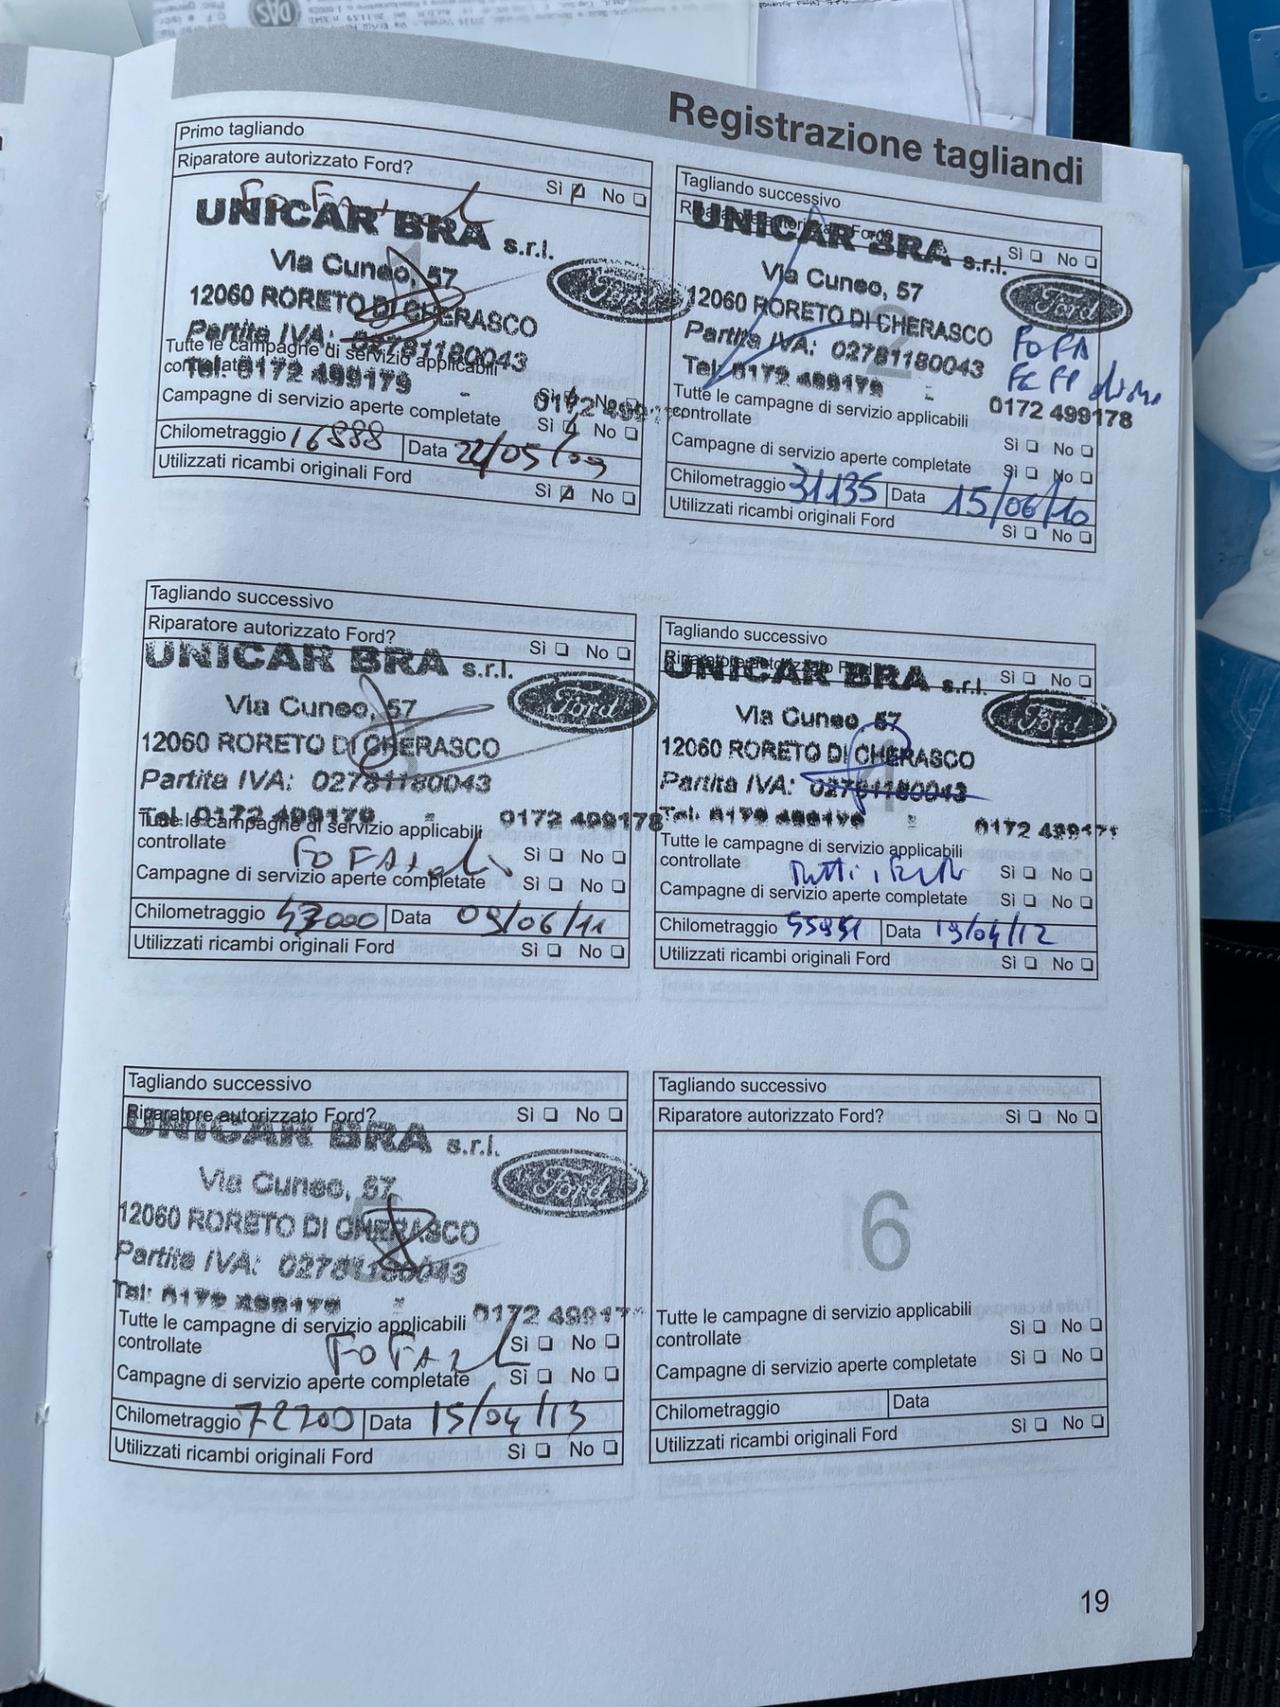 DAS
Registrazione tagliandi
Primo tagliando
Riparatore autorizzato Ford?
Sì No
UNICAR BRA s.r.l.
Via Cuneo, 57
Ford
12060 RORETO DI CHERASCO
Partita IVA: 02781180043
Tutte le campagne di servizio applicabili
controllate
Tel: 0172 499179
Sì No
Campagne di servizio aperte completate
Sì No
Chilometraggio 16888 Data 22/05/09
Utilizzati ricambi originali Ford
Sì No
Tagliando successivo
Riparatore autorizzato Ford?
Sì No
UNICAR BRA s.r.l.
Via Cuneo, 57
Ford
12060 RORETO DI CHERASCO
Partita IVA: 02781180043
Tel: 0172 499179 - 0172 499178
2
Tutte le campagne di servizio applicabili
controllate
Sì No
Campagne di servizio aperte completate
Sì No
Chilometraggio 31135 Data 15/06/10
Utilizzati ricambi originali Ford
Sì No
Tagliando successivo
Riparatore autorizzato Ford?
Sì No
UNICAR BRA s.r.l.
Via Cuneo, 57
Ford
12060 RORETO DI CHERASCO
Partita IVA: 02781180043
Tel: 0172 499179 - 0172 499178
Tutte le campagne di servizio applicabili
controllate
Sì No
Campagne di servizio aperte completate
Sì No
Chilometraggio 43000 Data 09/06/11
Utilizzati ricambi originali Ford
Sì No
Tagliando successivo
Riparatore autorizzato Ford?
Sì No
UNICAR BRA s.r.l.
Via Cuneo, 57
Ford
12060 RORETO DI CHERASCO
Partita IVA: 02781180043
Tel: 0172 499179 - 0172 499178
4
Tutte le campagne di servizio applicabili
controllate
Sì No
Campagne di servizio aperte completate
Sì No
Chilometraggio Data 19/04/12
Utilizzati ricambi originali Ford
Sì No
Tagliando successivo
Riparatore autorizzato Ford?
Sì No
UNICAR BRA s.r.l.
Via Cuneo, 57
Ford
12060 RORETO DI CHERASCO
Partita IVA: 02781180043
Tel: 0172 499179 - 0172 499178
5
Tutte le campagne di servizio applicabili
controllate
Sì No
Campagne di servizio aperte completate
Sì No
Chilometraggio 72700 Data 15/04/13
Utilizzati ricambi originali Ford
Sì No
Tagliando successivo
Riparatore autorizzato Ford?
Sì No
6
Tutte le campagne di servizio applicabili
controllate
Sì No
Campagne di servizio aperte completate
Sì No
Chilometraggio Data
Utilizzati ricambi originali Ford
Sì No
19